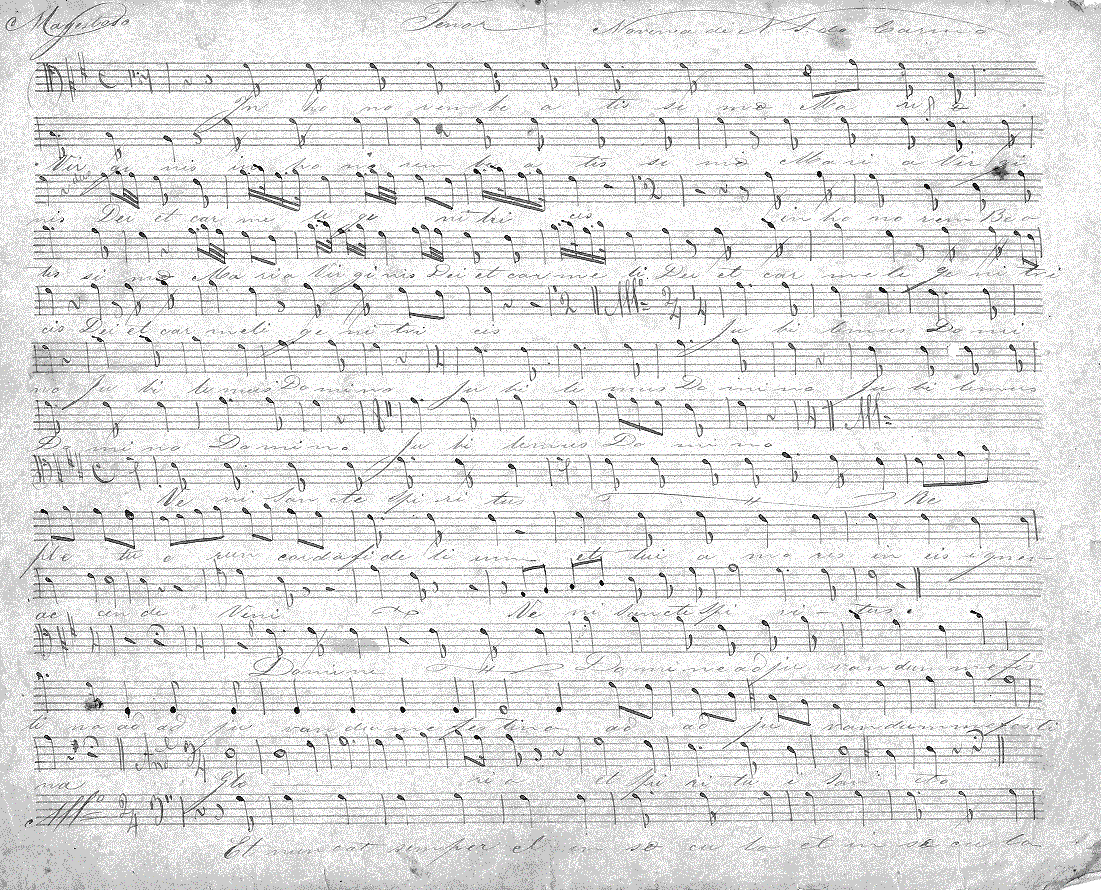 Magestoso Tenor Novena de N S do Carmo
In ho no rem be a tis si mæ Ma ri æ
Vir gi nis in ho no rem be a tis si mæ Mari a Vir gi
nis Dei et car me li ge ni tri cis in ho no rem Be a
tis si mæ Ma ria Vir ginis Dei et car me li Dei et car me li ge ni tri
cis Dei et car meli ge ni tri cis 2 All.º 2/4 4 Ju bi lemus Domi
no Ju bi lemus Domino 4 Ju bi le mus Domino Ju bi lemus
Domino Domino Ju bi lemus Do mi no 4 All.º
Ve ni Sancte Spi ri tus Re
ple tu o rum corda fi de li um et tui a mo ris in eis ignem
ac cende Veni Ve ni Sancte Spi ri tus.
4 4 Domine Domine ad ju vandum me fes
ti na ad ad ju vandum me festina ad ad ju vandum me festi
na And.e Glo ri a et Spi ri tu i San cto
2/4 Et nunc et semper et in sæ cu la et in sæ cu la